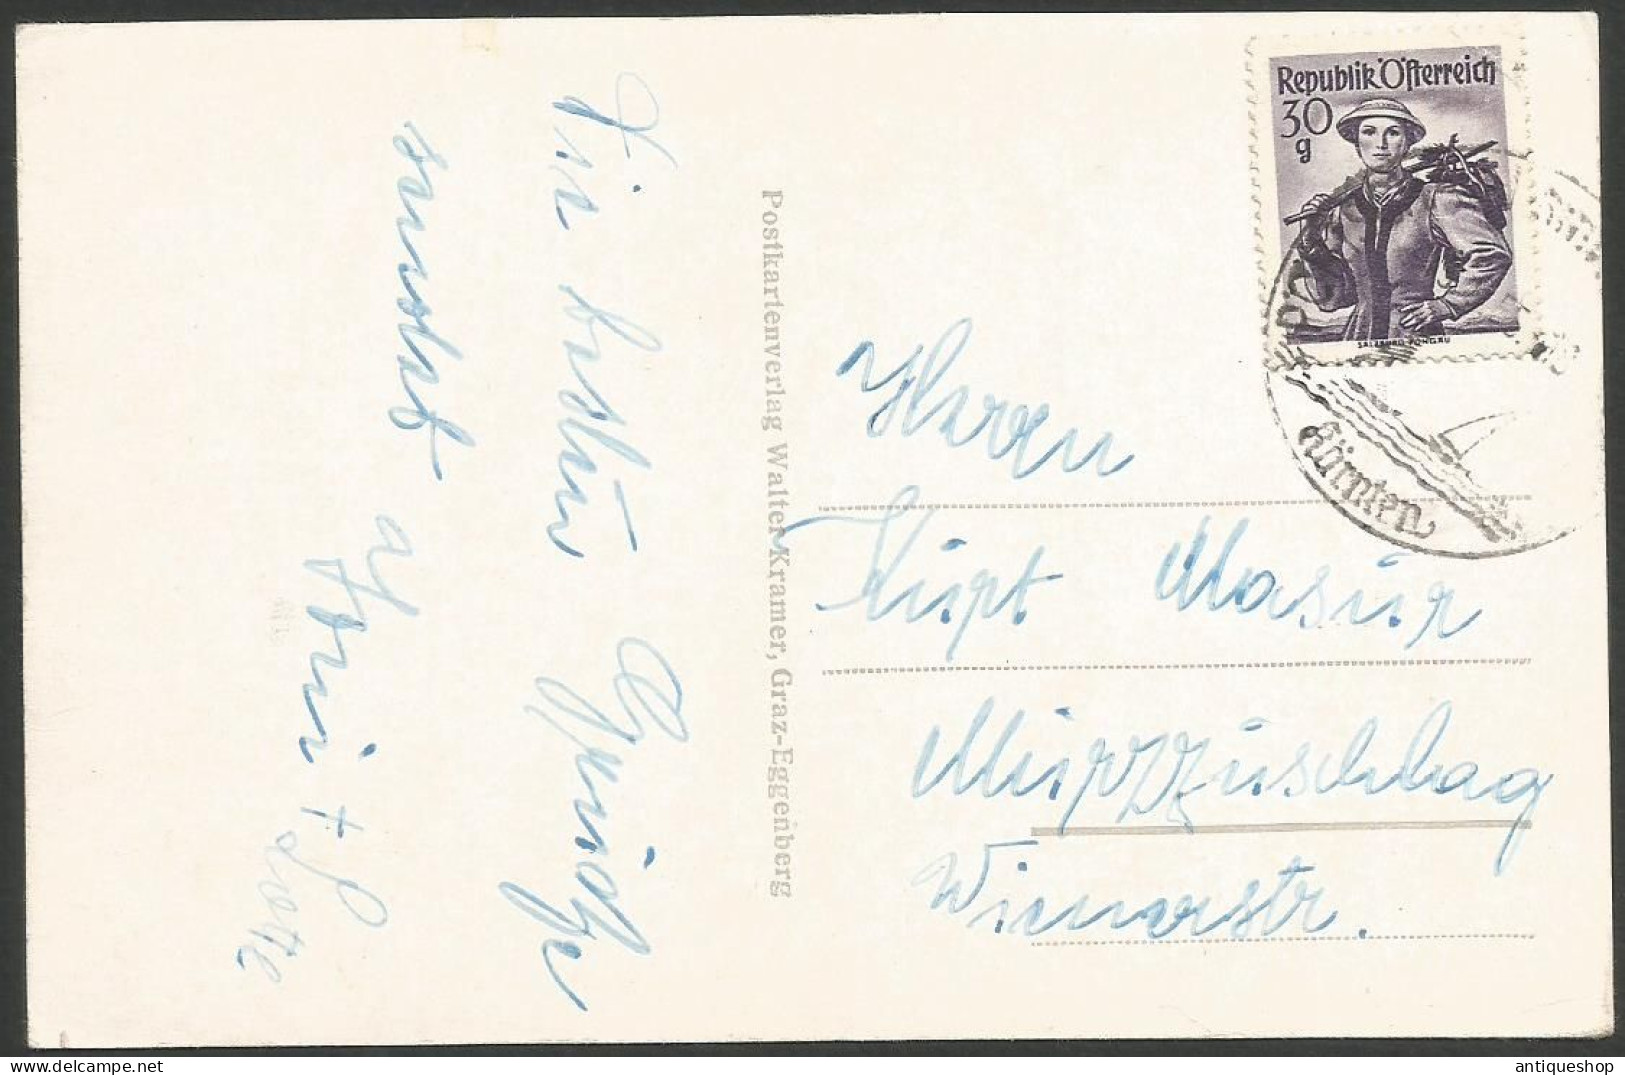 Die besten Grüße
sendet
Toni + Lotte
Postkartenverlag Walter Kramer, Graz-Eggenberg
Republik Österreich
30
g
SALZBURG, PONGAU
Kärnten
Herrn
Masur
Mürzzuschlag
Wienerstr.
antiqueshop